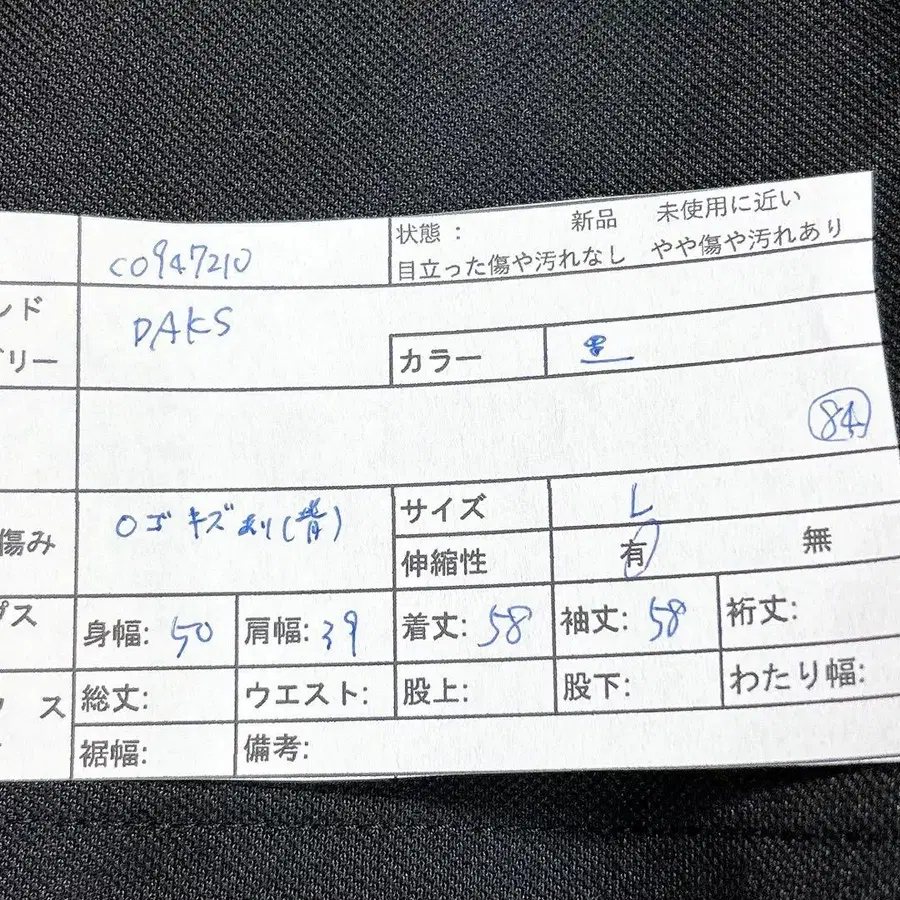 CO947210
状態： 新品 未使用に近い
目立った傷や汚れなし やや傷や汚れあり
ンド
DAKS
リー
カラー 黒
84
傷み
ロゴキズあり(背)
サイズ L
伸縮性 有 無
プス
身幅: 50 肩幅: 39 着丈: 58 袖丈: 58 裄丈:
ス
総丈: ウエスト: 股上: 股下: わたり幅:
裾幅: 備考: